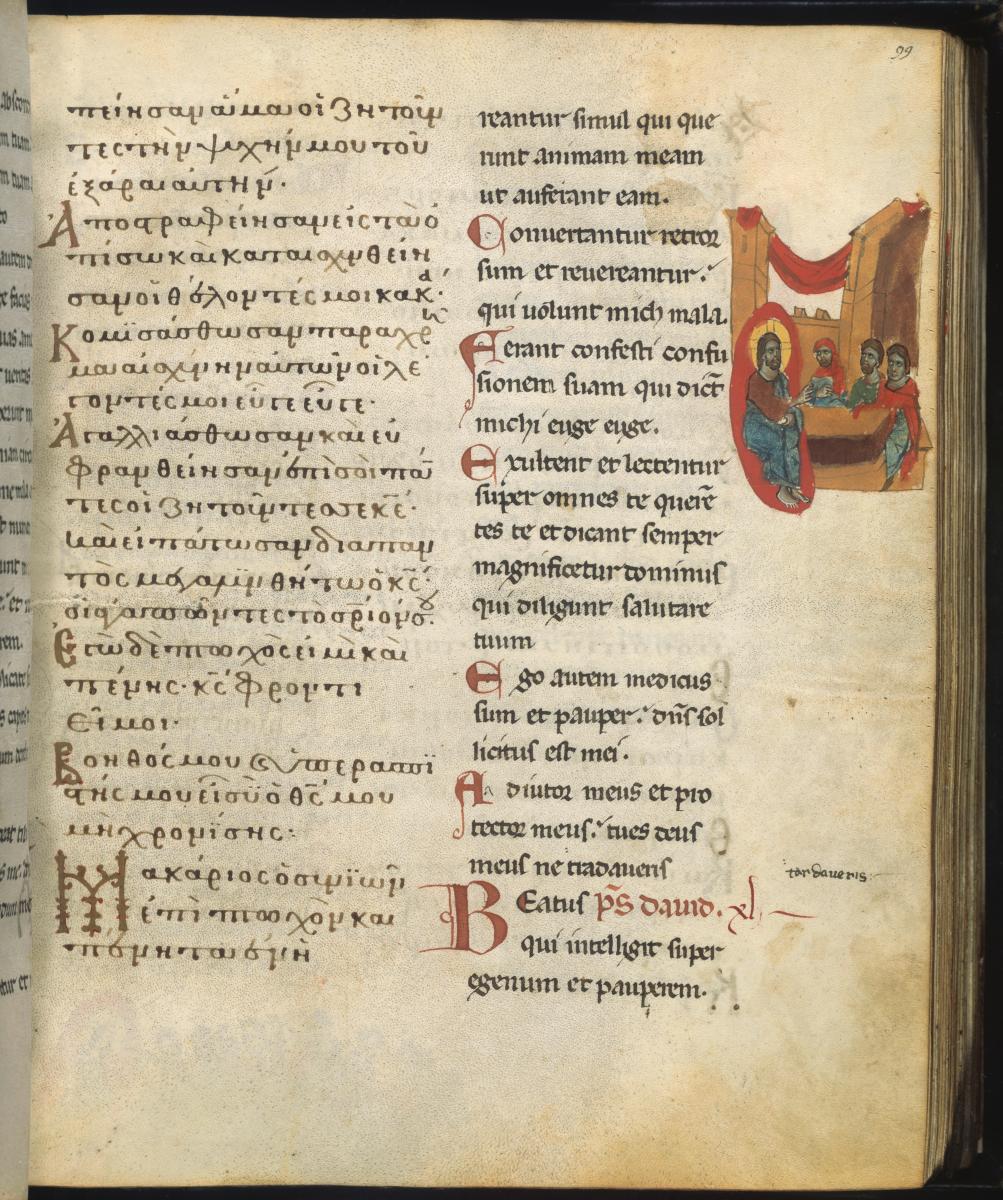 99
πείησαν ἅμα οἱ ζητοῦν
τες τὴν ψυχήν μου τοῦ
ἐξάραι αυτήν·
Ἀποστραφείησαν εἰς τὰ ὀ
πίσω και καταισχυνθείη
σαν οἱ θέλοντές μοι κακ
Κομισάσθωσαν παραχρ
μα αισχύνην αυτῶν οἱ λέ
γοντές μοι εὖγε εὖγε·
Ἀγαλλιάσθωσαν και ευ
φρανθείησαν επὶ σοὶ πά
τες οἱ ζητοῦντες σε κε·
και ειπάτωσαν δια παν
τὸς μεγαλυνθήτω ὁ κς·
οἱ αγαπῶντες τὸ σριόν σ.
Ἐγὼ δὲ πτωχός εἰμι καὶ
πένης· κς φροντι
εῖ μοι·
Βοηθός μου ϗ υπερασπι
στής μου εἶ σὺ ὁ θς μου
μὴ χρονίσης:
Μακάριος ὁ συνϊῶν
ἐπὶ πτωχὸν και
πένητα εν ἡ
reantur simul qui que
runt animam meam
ut auferant eam.
Conuertantur retror
sum et reuereantur.
qui uolunt mich mala.
Ferant confesti confu
sionem suam qui dict
michi euge euge.
Exultent et lectentur
super omnes te querē
tes te et dicant semper
magnificetur dominus
qui diligunt salutare
tuum
Ego autem medicus
sum et pauper. dn̄s sol
licitus est mei.
Adiutor meus et pro
tector meus. tu es deus
meus ne tradaueris
tardaveris:
BEatus p̄s dauid. xl
qui intelligit super
egenum et pauperem.